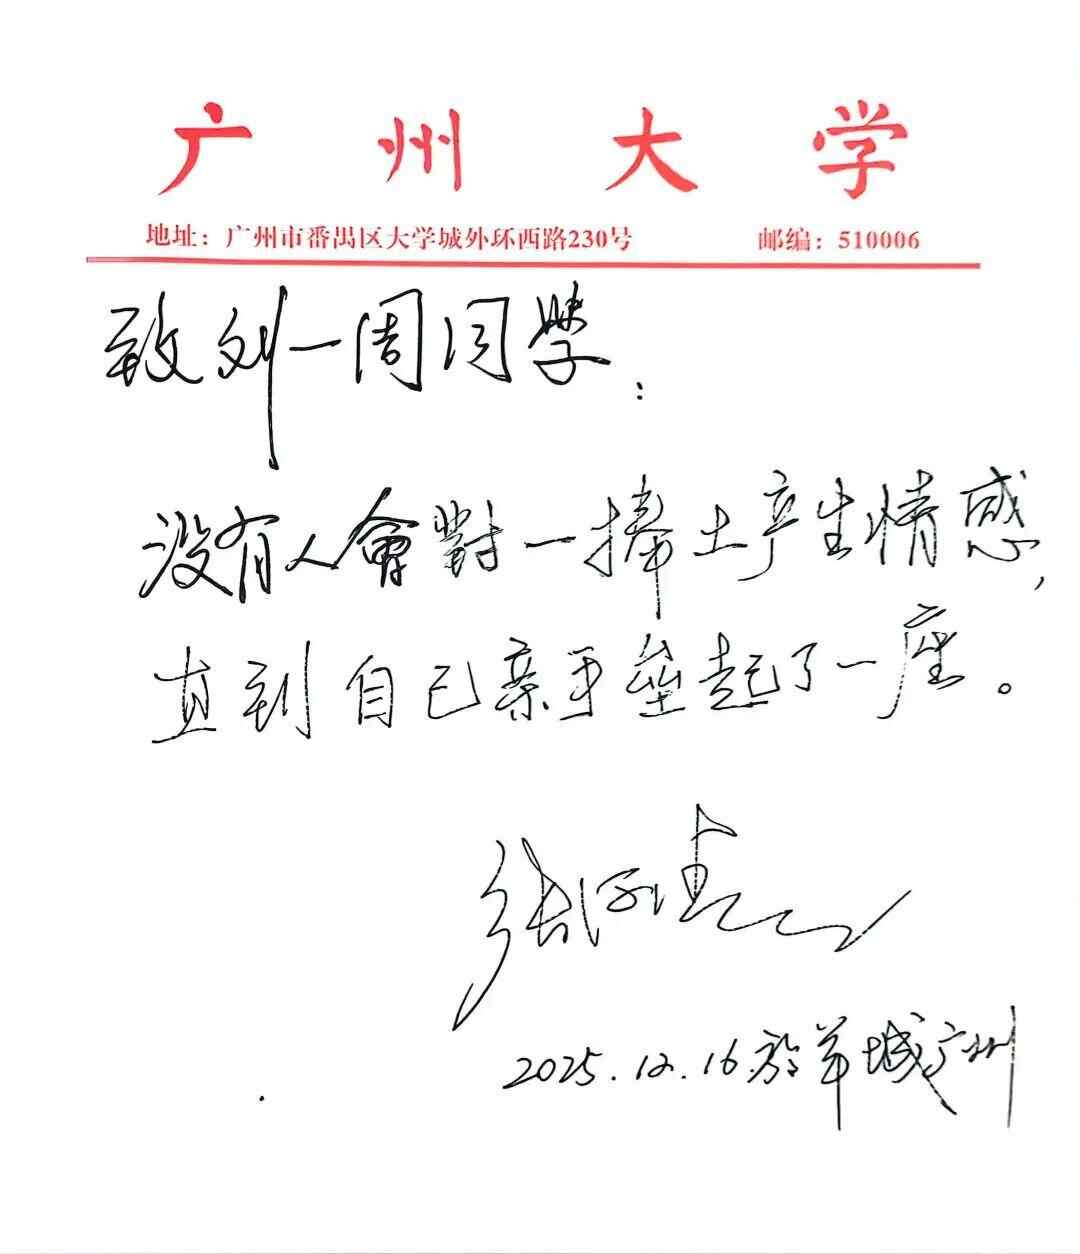 广州大学
地址：广州市番禺区大学城外环西路230号 邮编：510006
致刘一周同学：
没有人會對一捧土产生情感，
直到自己亲手垒起了一座。
张
2025.12.16.於羊城广州